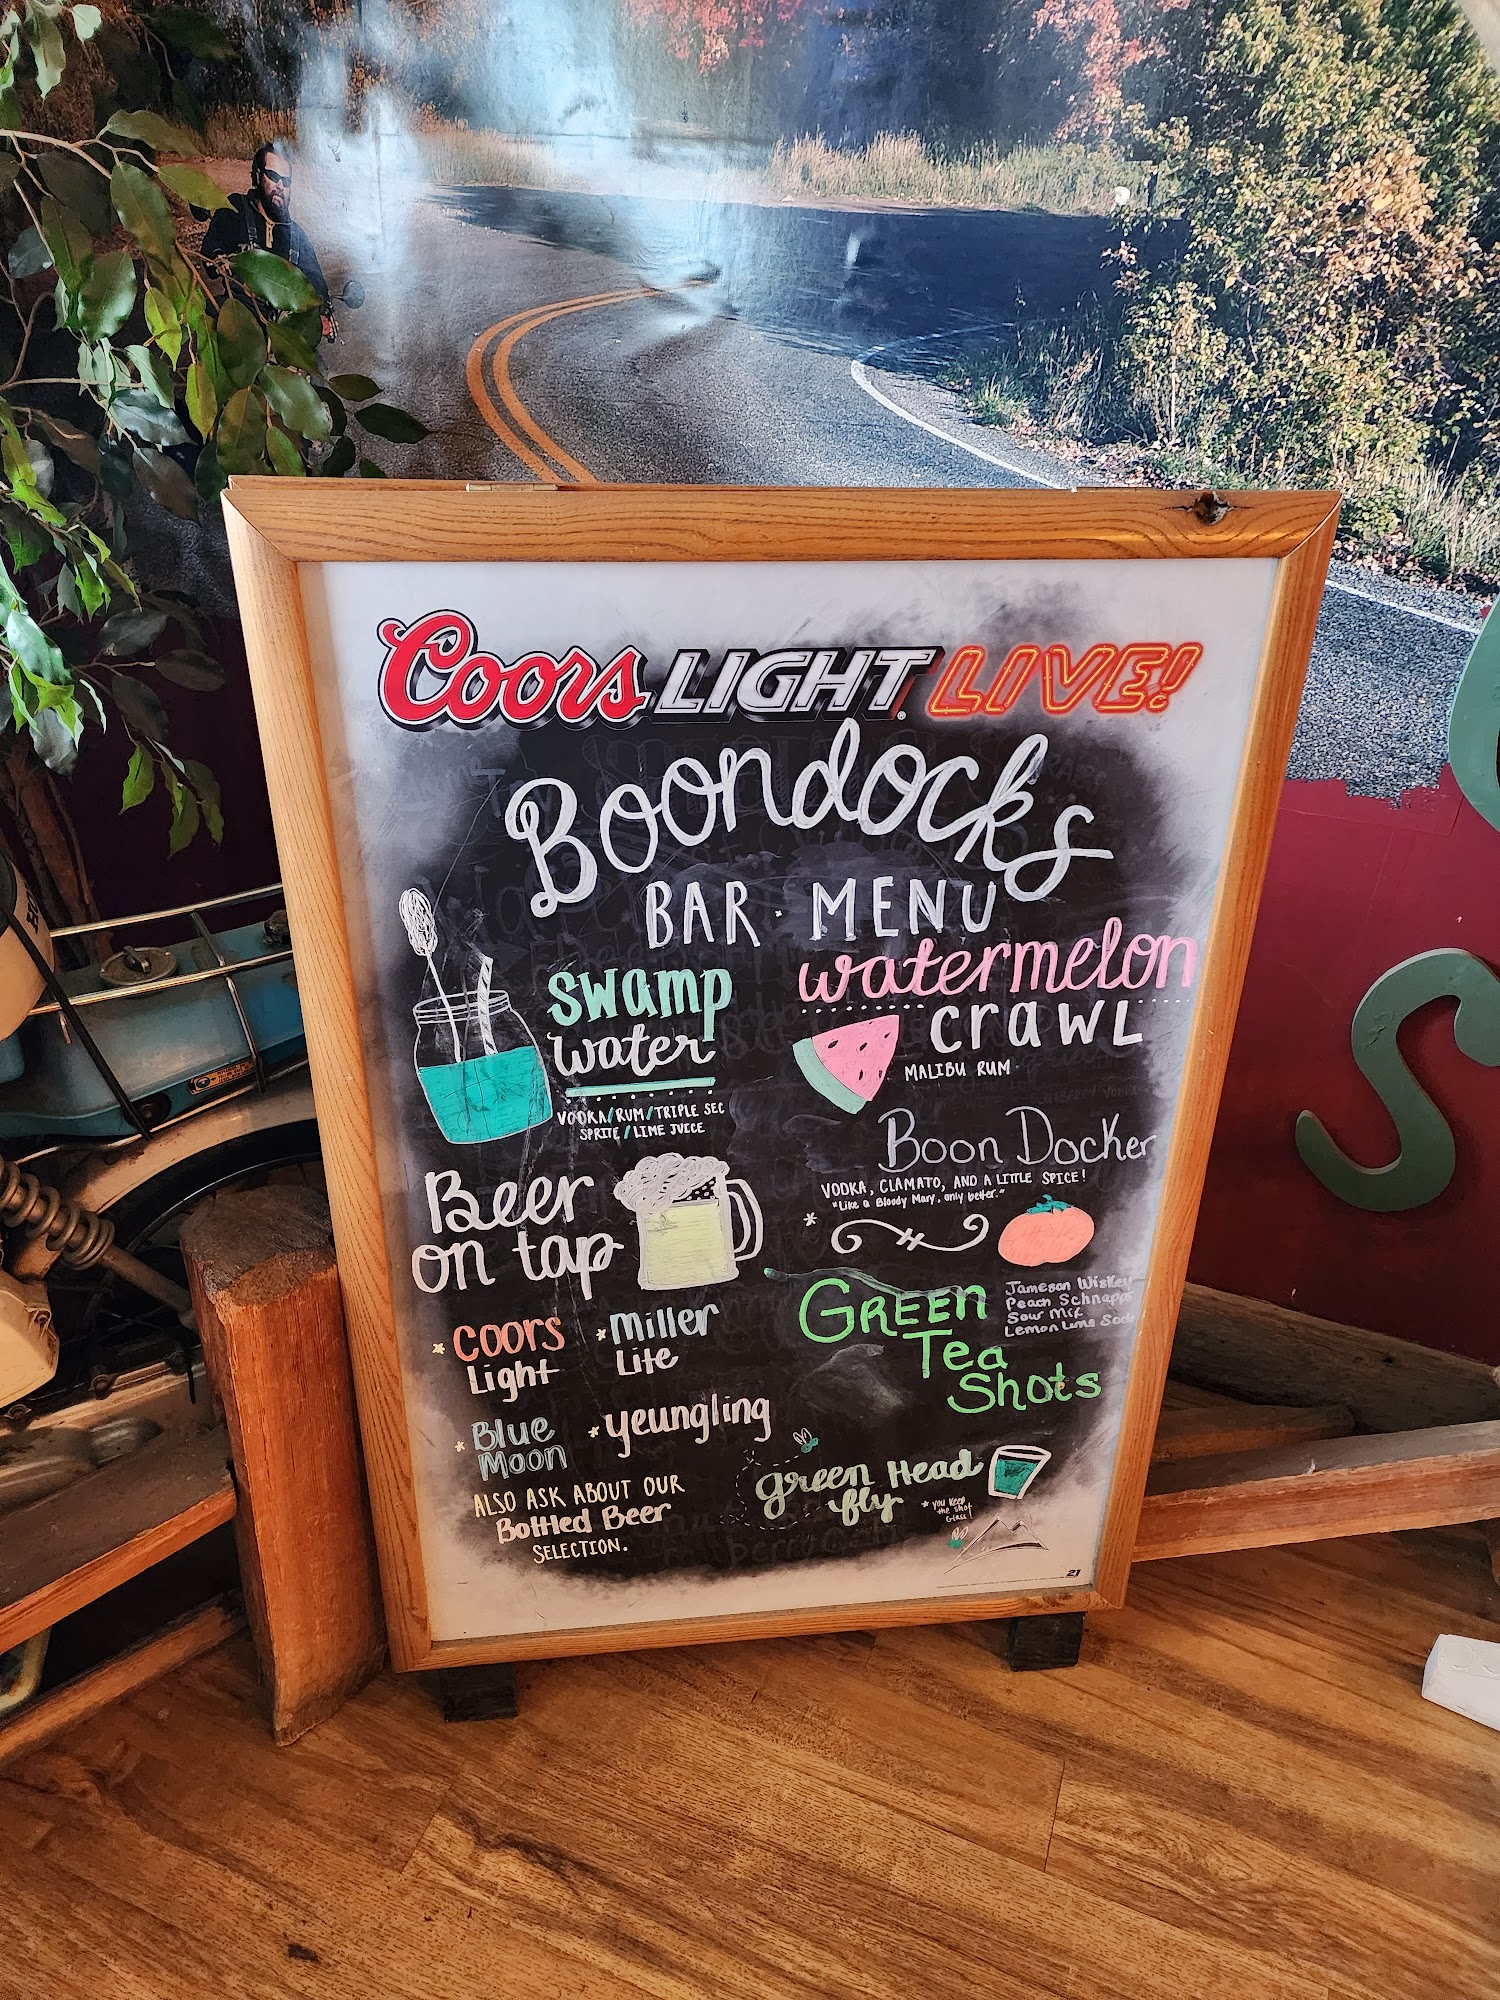 Coors LIGHT LIVE!
Boondocks
BAR · MENU
swamp
water
VODKA/RUM/TRIPLE SEC
SPRITE/LIME JUICE
watermelon
crawl
MALIBU RUM
Boon Docker
VODKA, CLAMATO, AND A LITTLE SPICE!
"Like a Bloody Mary, only better."
Beer
on tap
* Coors
Light
* Miller
Lite
* Blue
Moon
* yeungling
ALSO ASK ABOUT OUR
Bottled Beer
SELECTION.
GREEN
Tea
Shots
Jameson Wiskey
Peach Schnapps
Sour Mix
Lemon Lime Soda
green Head
fly
* you keep
the shot
Glass!
21